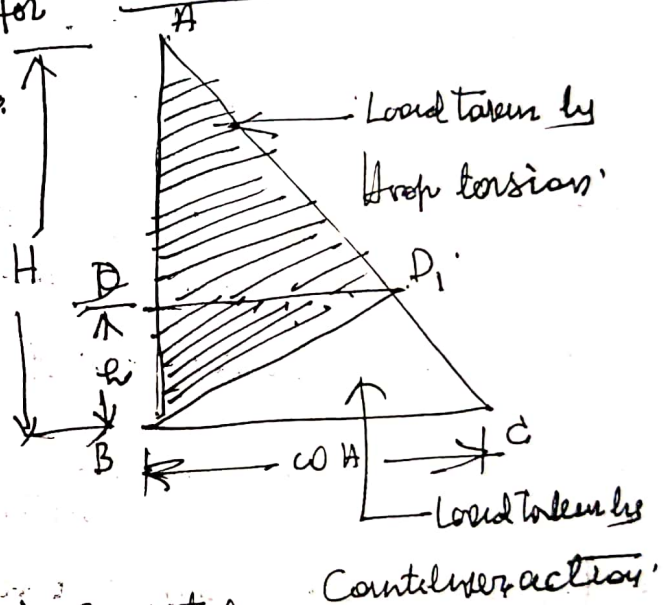 for
A
Load taken by
Hoop torsion.
H
D
D1.
h
B
C
ωH
Load taken by
Cantilever action.